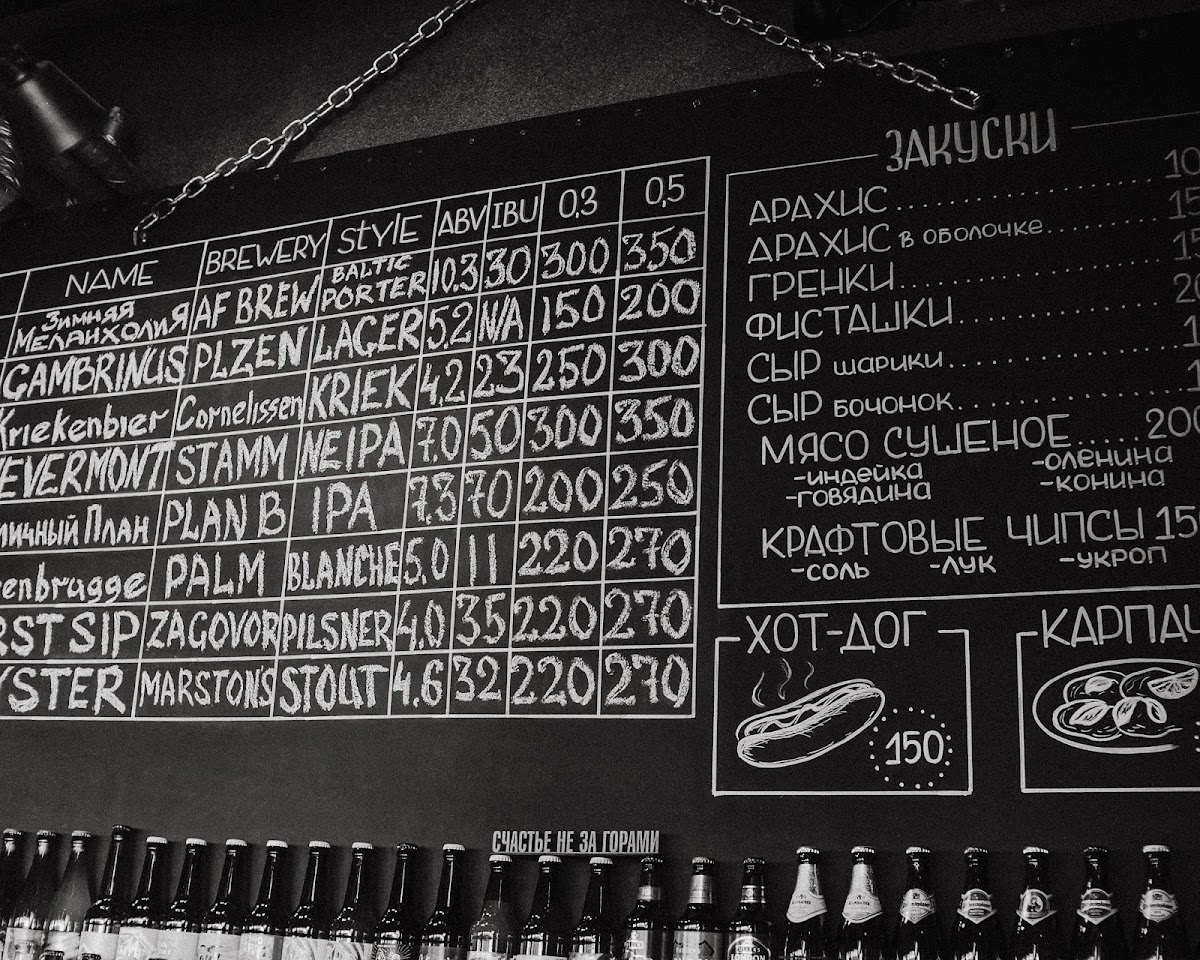 NAME BREWERY STYLE ABV IBU 0,3 0,5
Зимняя Меланхолия AF BREW BALTIC PORTER 10.3 30 300 350
GAMBRINUS PLZEN LAGER 5.2 N/A 150 200
Kriekenbier Cornelissen KRIEK 4.2 23 250 300
EVERMONT STAMM NEIPA 7.0 50 300 350
личный План PLAN B IPA 7.3 70 200 250
enbrugge PALM BLANCHE 5.0 11 220 270
RST SIP ZAGOVOR PILSNER 4.0 35 220 270
YSTER MARSTON'S STOUT 4.6 32 220 270
ЗАКУСКИ
АРАХИС 10
АРАХИС в оболочке 15
ГРЕНКИ 15
ФИСТАШКИ 20
СЫР шарики 1
СЫР бочонок 1
МЯСО СУШЕНОЕ 200
-индейка -оленина
-говядина -конина
КРАФТОВЫЕ ЧИПСЫ 15
-соль -лук -укроп
ХОТ-ДОГ
150
КАРПАЧ
СЧАСТЬЕ НЕ ЗА ГОРАМИ